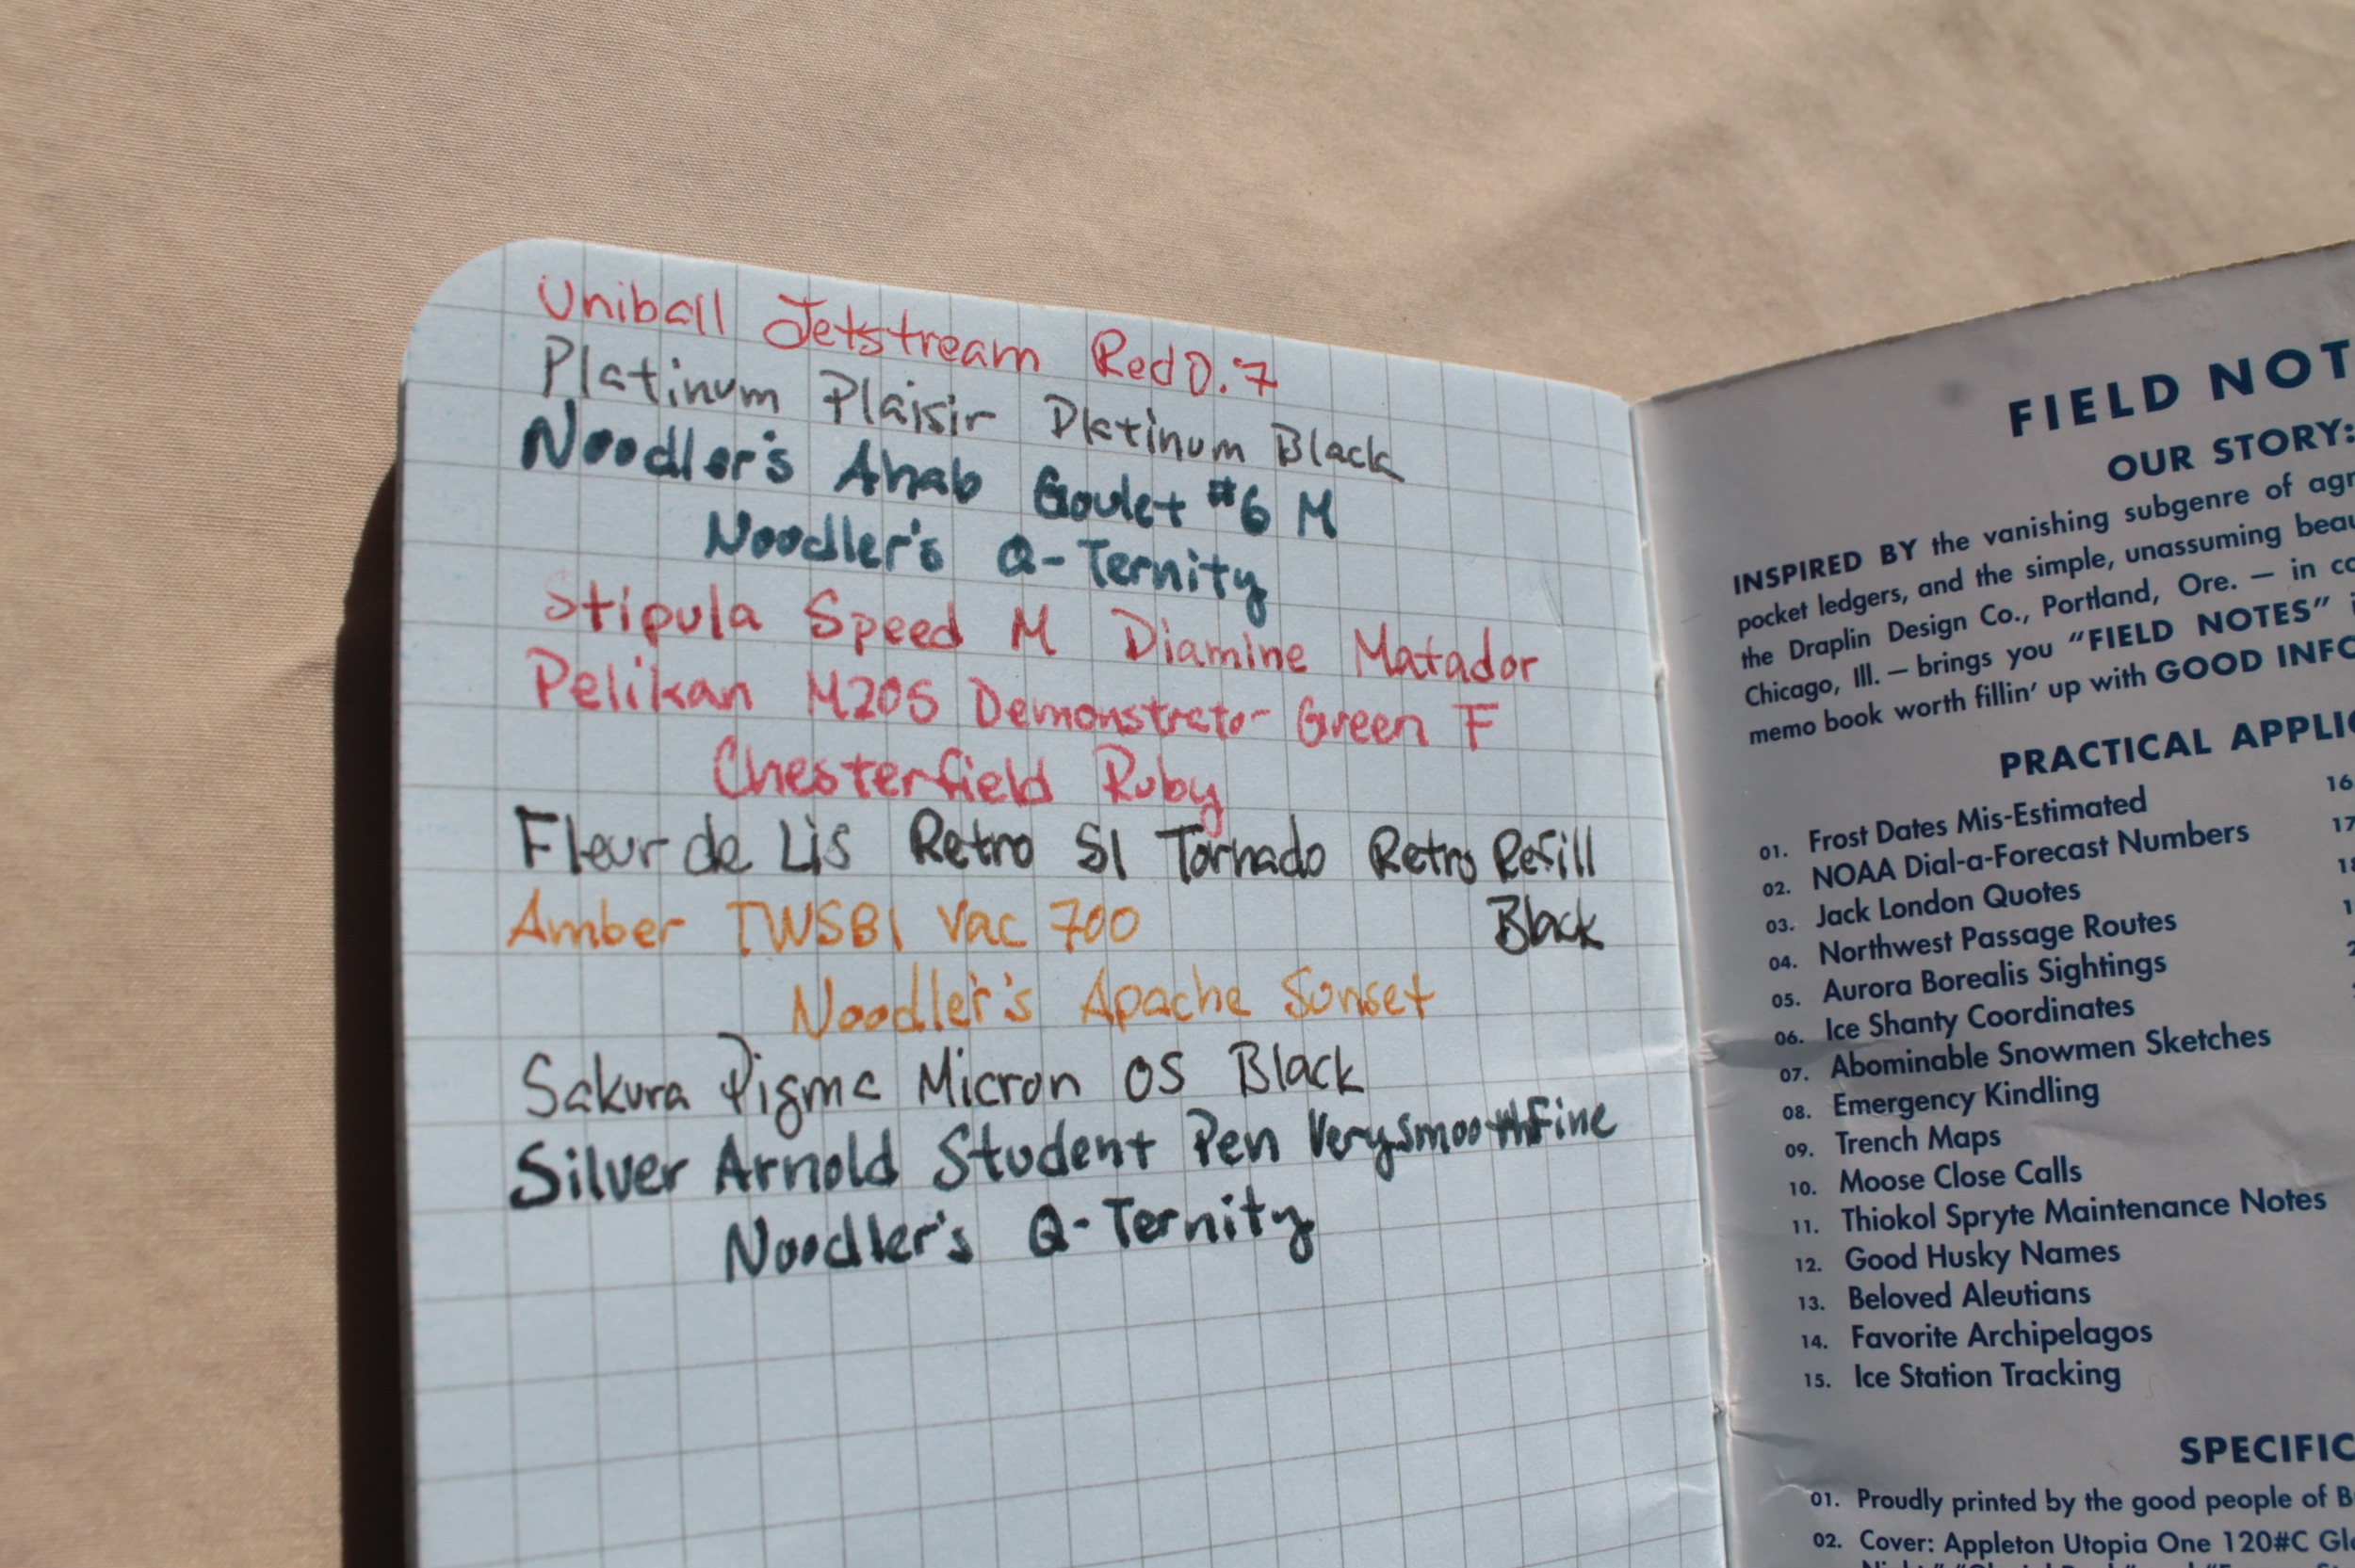 Uniball Jetstream Red 0.7
Platinum Plaisir Platinum Black
Noodler's Ahab Goulet #6 M
Noodler's Q-Ternity
Stipula Speed M Diamine Matador
Pelikan M205 Demonstrator Green F
Chesterfield Ruby
Fleur de Lis Retro 51 Tornado Retro Refill
Black
Amber TWSBI Vac 700
Noodler's Apache Sunset
Sakura Pigma Micron 05 Black
Silver Arnold Student Pen Very smooth Fine
Noodler's Q-Ternity
FIELD NOT
OUR STORY:
INSPIRED BY the vanishing subgenre of agr
pocket ledgers, and the simple, unassuming beau
the Draplin Design Co., Portland, Ore. — in co
Chicago, Ill. — brings you "FIELD NOTES" i
memo book worth fillin' up with GOOD INFO
PRACTICAL APPLIC
01. Frost Dates Mis-Estimated 16
02. NOAA Dial-a-Forecast Numbers 17
03. Jack London Quotes 18
04. Northwest Passage Routes 1
05. Aurora Borealis Sightings 2
06. Ice Shanty Coordinates
07. Abominable Snowmen Sketches
08. Emergency Kindling
09. Trench Maps
10. Moose Close Calls
11. Thiokol Spryte Maintenance Notes
12. Good Husky Names
13. Beloved Aleutians
14. Favorite Archipelagos
15. Ice Station Tracking
SPECIFIC
01. Proudly printed by the good people of B
02. Cover: Appleton Utopia One 120#C Gl